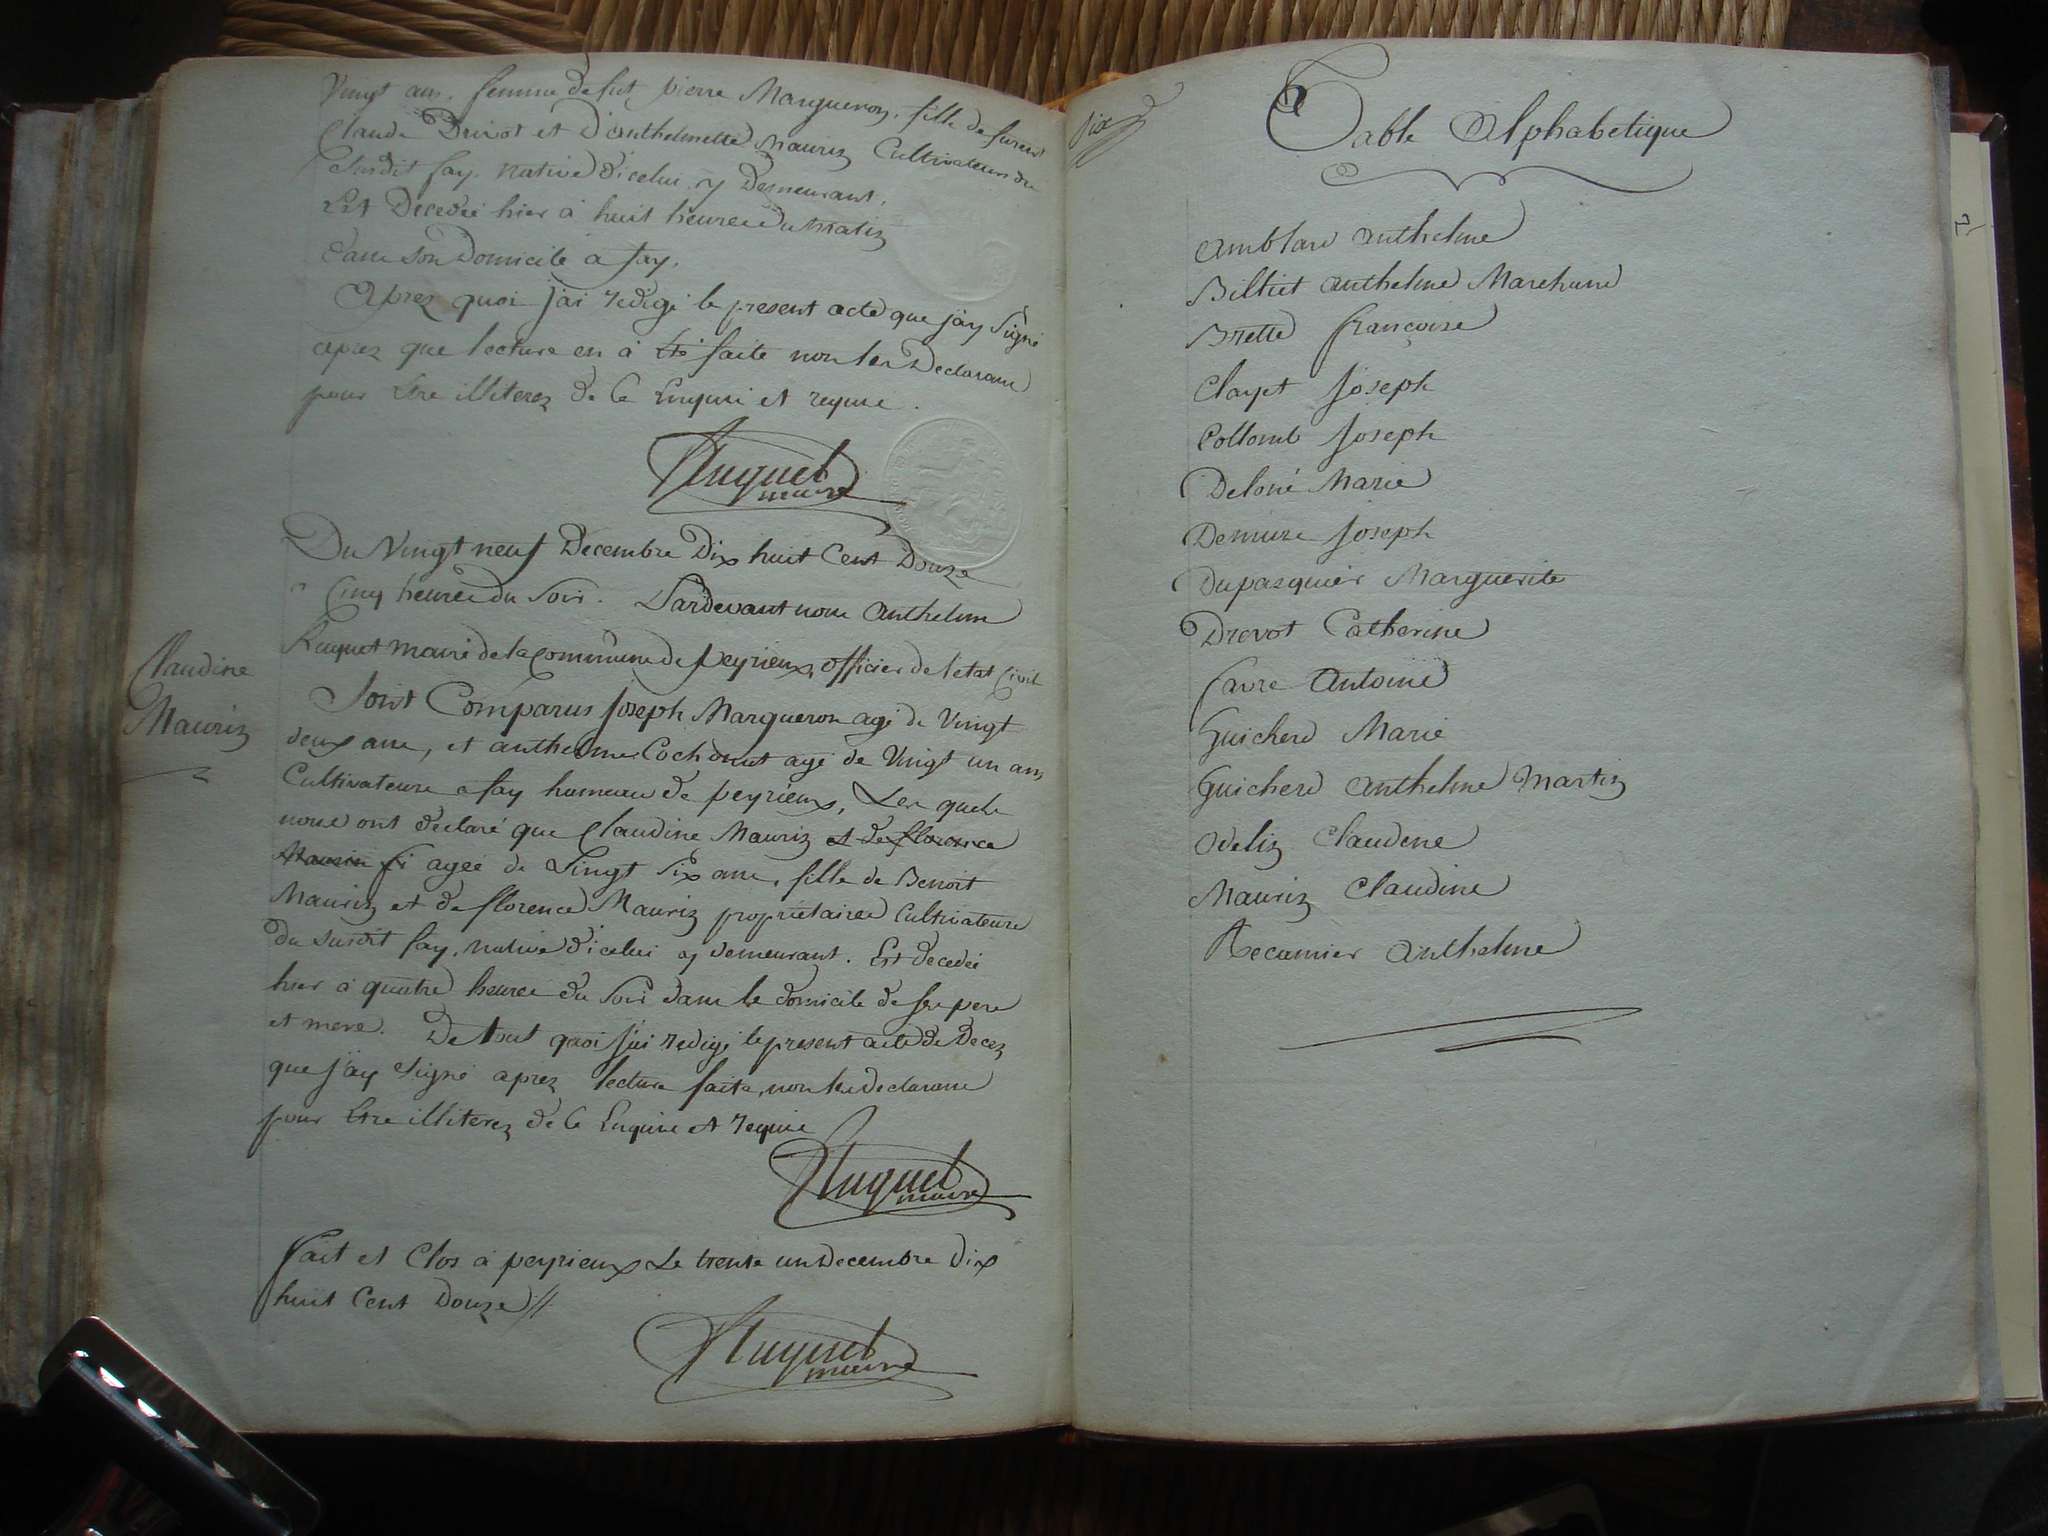 Vingt ans. femme de fut pierre Margueron, fille de fureut
Claude Drevot et d'anthelmette Maurin Cultivateurs du
Susdit fay. native d'icelui, y Demeurant,
Est Decedée hier à huit heures du Matin
dans son Domicile a fay.
Aprez quoi j'ai redigé le present acte que j'ay signé
aprez que lecture en à été faite non les Declarans
pour être illiterez de ce Enquis et requis.
Huguet
maire
Du Vingt neuf Decembre Dix huit Cent Douze
a Cinq heures du Soir. Pardevant nous anthelme
Huguet maire de la Commune de peyrieux, officier de l'etat Civil
Claudine
Maurin
Sont Comparus Joseph Margueron agé de Vingt
deux ans, et anthelme Cochonat agé de Vingt un ans
Cultivateurs a fay hameau de peyrieux, Les quels
nous ont declaré que Claudine Maurin et de florence
Maurin fi agée de Vingt Six ans, fille de Benoit
Maurin et de florence Maurin proprietaires Cultivateurs
du susdit fay, native d'icelui y demeurant. Est decedée
hier à quatre heures du Soir dans le domicile de ses pere
et mere. De tout quoi j'ai redigé le present acte de Decez
que j'ay signé aprez lecture faite, non les declarans
pour être illiterez de ce Enquis et requis
Huguet
maire
fait et Clos à peyrieux Le trente un Decembre Dix
huit Cent Douze //
Huguet
maire
Six
Table Alphabetique
Amblard anthelme
Billiet anthelme Marchand
Brette françoise
Clayet Joseph
Collomb Joseph
Deloné Marie
Demure Joseph
Dupasquier Marguerite
Drevot Catherine
favre Antoine
Guicherd Marie
Guicherd Anthelme Martin
Odelin Claudine
Maurin Claudine
Recamier Anthelme